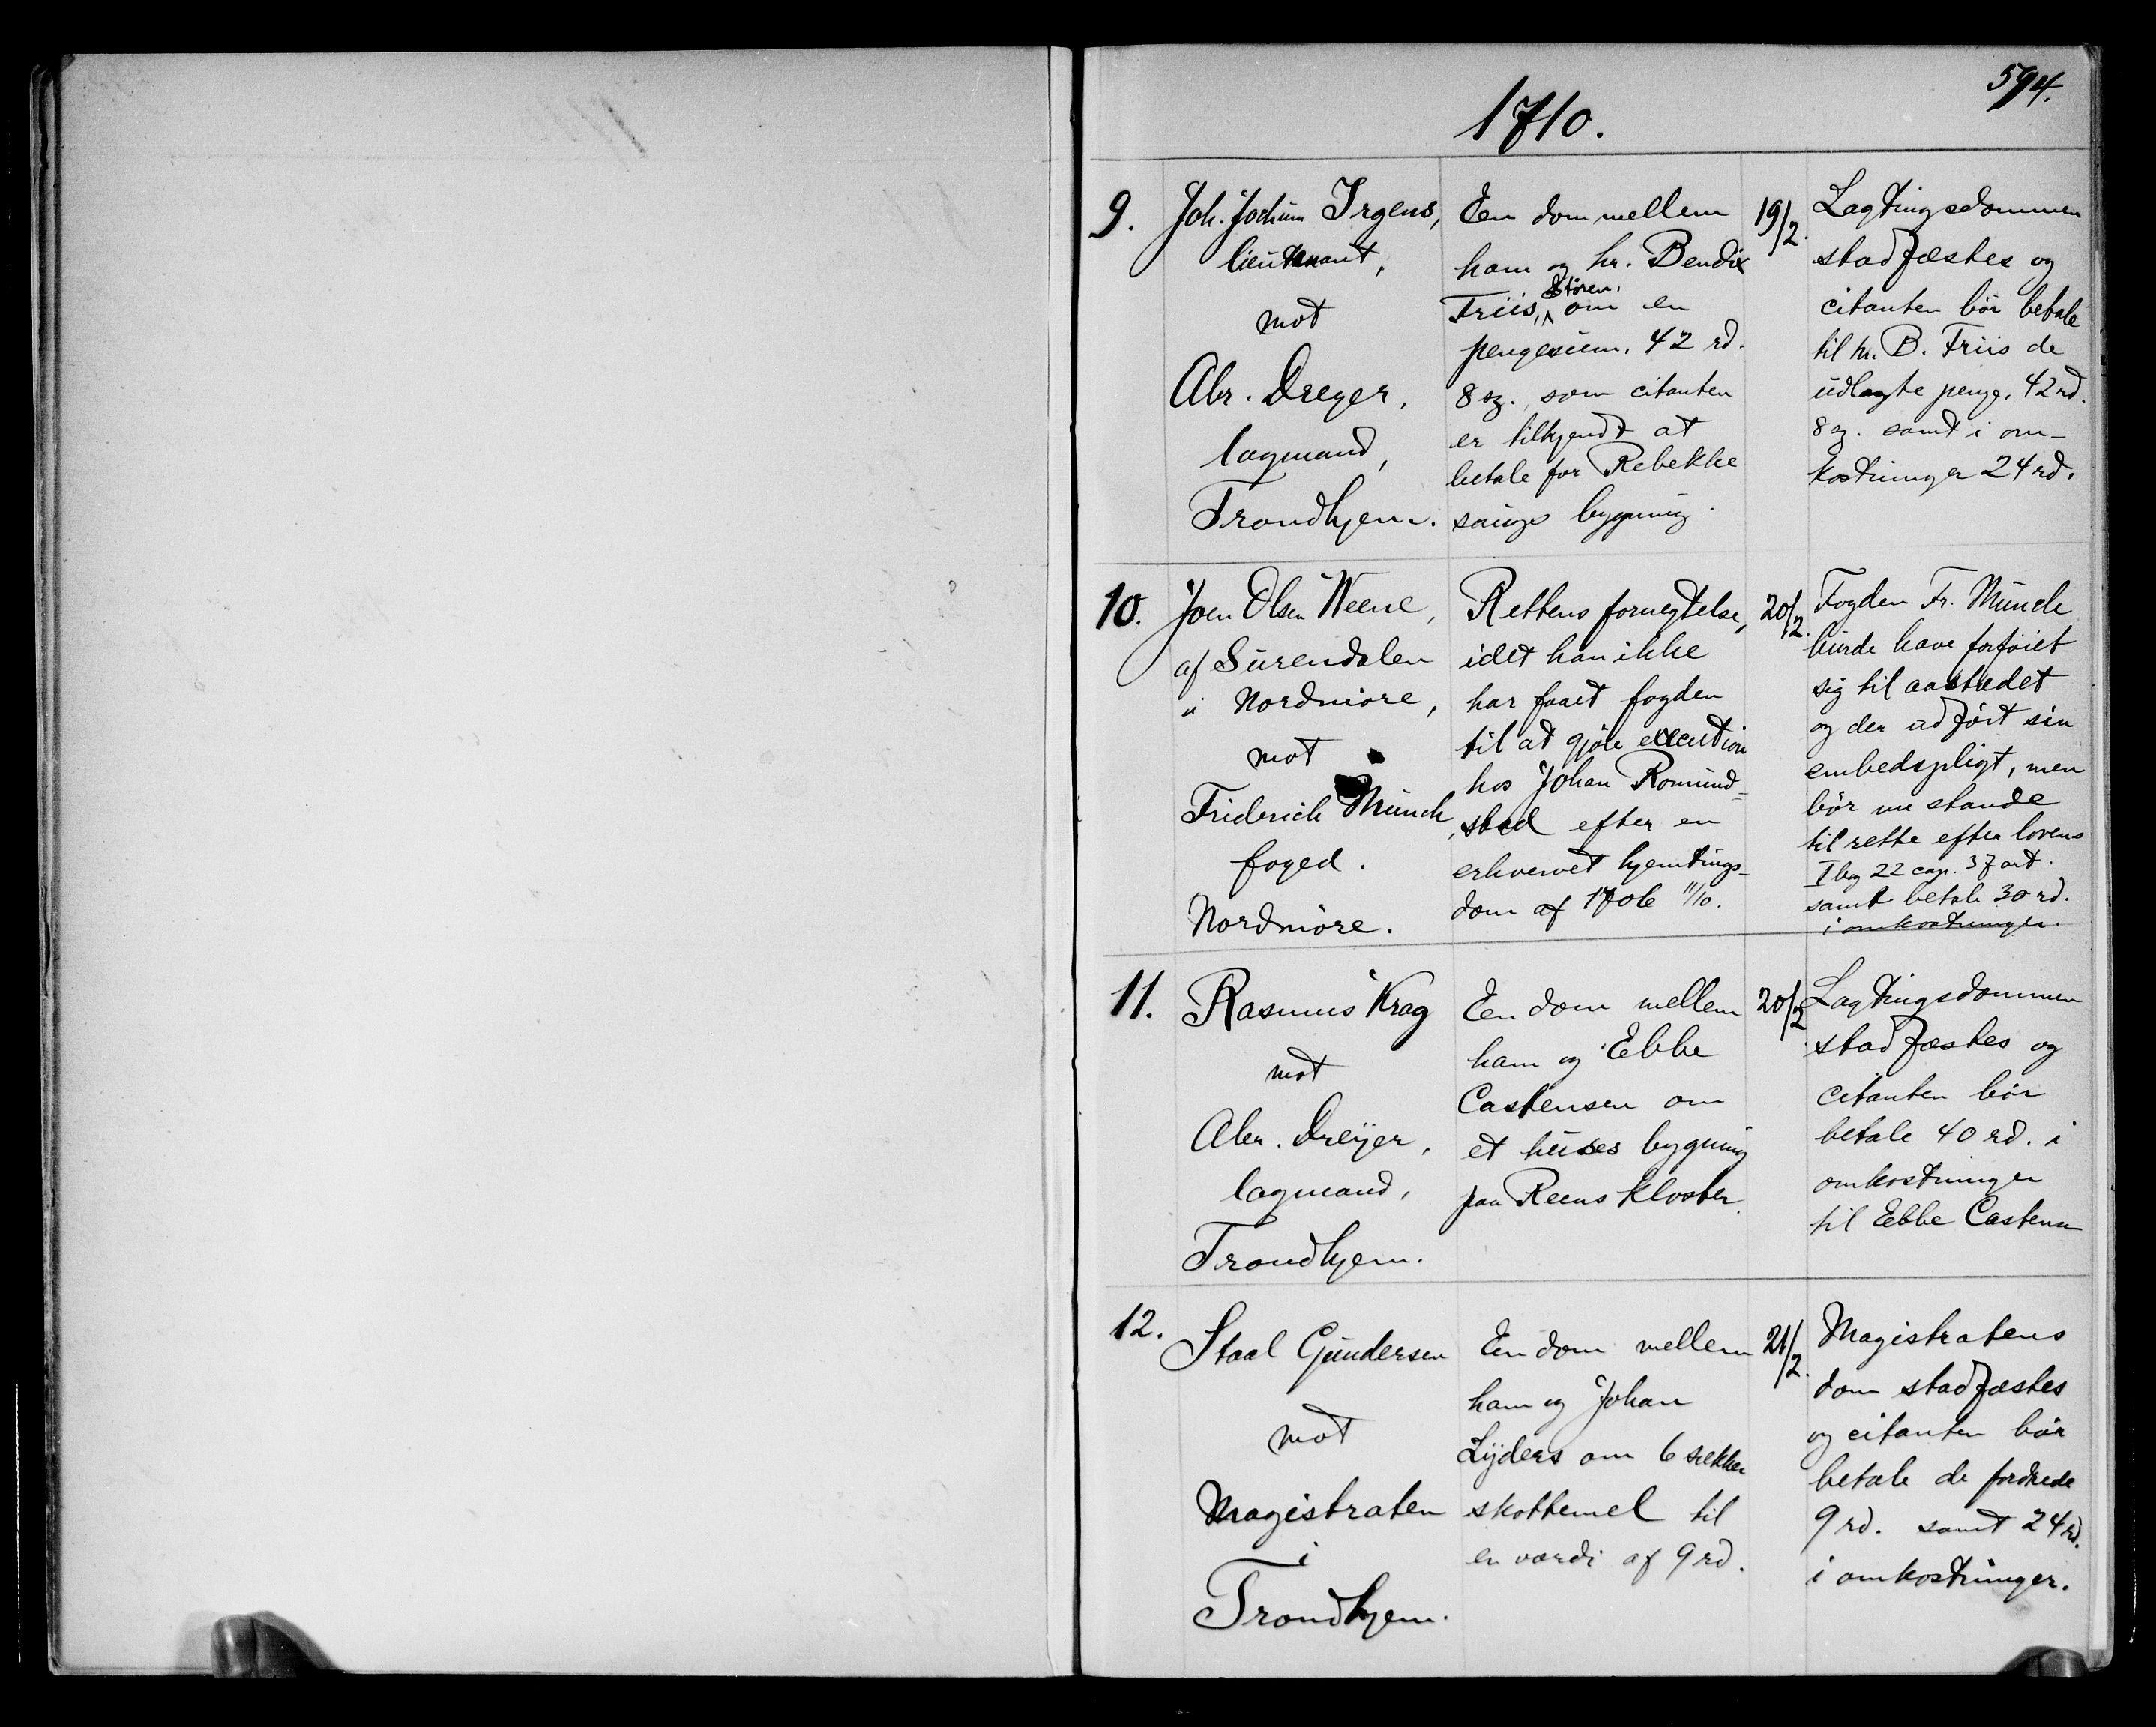 594.
1710.
9.
Joh. Jochum Irgens,
lieutenant,
mot
Abr. Dreyer,
lagmand,
Trondhjem.
Een dom mellem
ham og hr. Bendix
Friis, Støren, om en
pengesum. 42 rd.
8 sz., som citanten
er tilkjendt at
betale for Rebekke
bygning.
19/2.
Lagtingsdommen
stadfæstes og
citanten bör betale
til hr. B. Friis de
udlagte penge, 42 rd.
8 sz. samt i om-
kostninger 24 rd.
10.
Joen Olsen Weene,
af Surendalen
i Nordmöre,
mot
Friderich Münch,
foged.
Nordmöre.
Rettens fornegtelse,
idet han ikke
har faaet fogden
til at gjöre execution
hos Johan Romund=
stad efter en
erhvervet hjemtings-
dom af 1706 11/10.
20/2.
Fogden Fr. Münch
burde have forföiet
sig til aastedet
og der udfört sin
embedspligt, men
bör nu stande
til rette efter lovens
I bog 22 cap. 37 art.
samt betale 30 rd.
i omkostninger.
11.
Rasmus Krag
mot
Abr. Dreÿer,
lagmand,
Trondhjem.
Een dom mellem
ham og Ebbe
Castensen om
et huses bygning
paa Reens Kloster.
20/2
Lagtingsdommen
stadfæstes og
citanten bör
betale 40 rd. i
omkostninger
til Ebbe Castensen
12.
Staal Gundersen
mot
Magistraten
i
Trondhjem.
Een dom mellem
ham og Johan
Lÿders om 6 sekker
skottemel til
en værdi af 9 rd.
21/2.
Magistratens
dom stadfæstes
og citanten bör
betale de fordrede
9 rd. samt 24 rd.
i omkostninger.